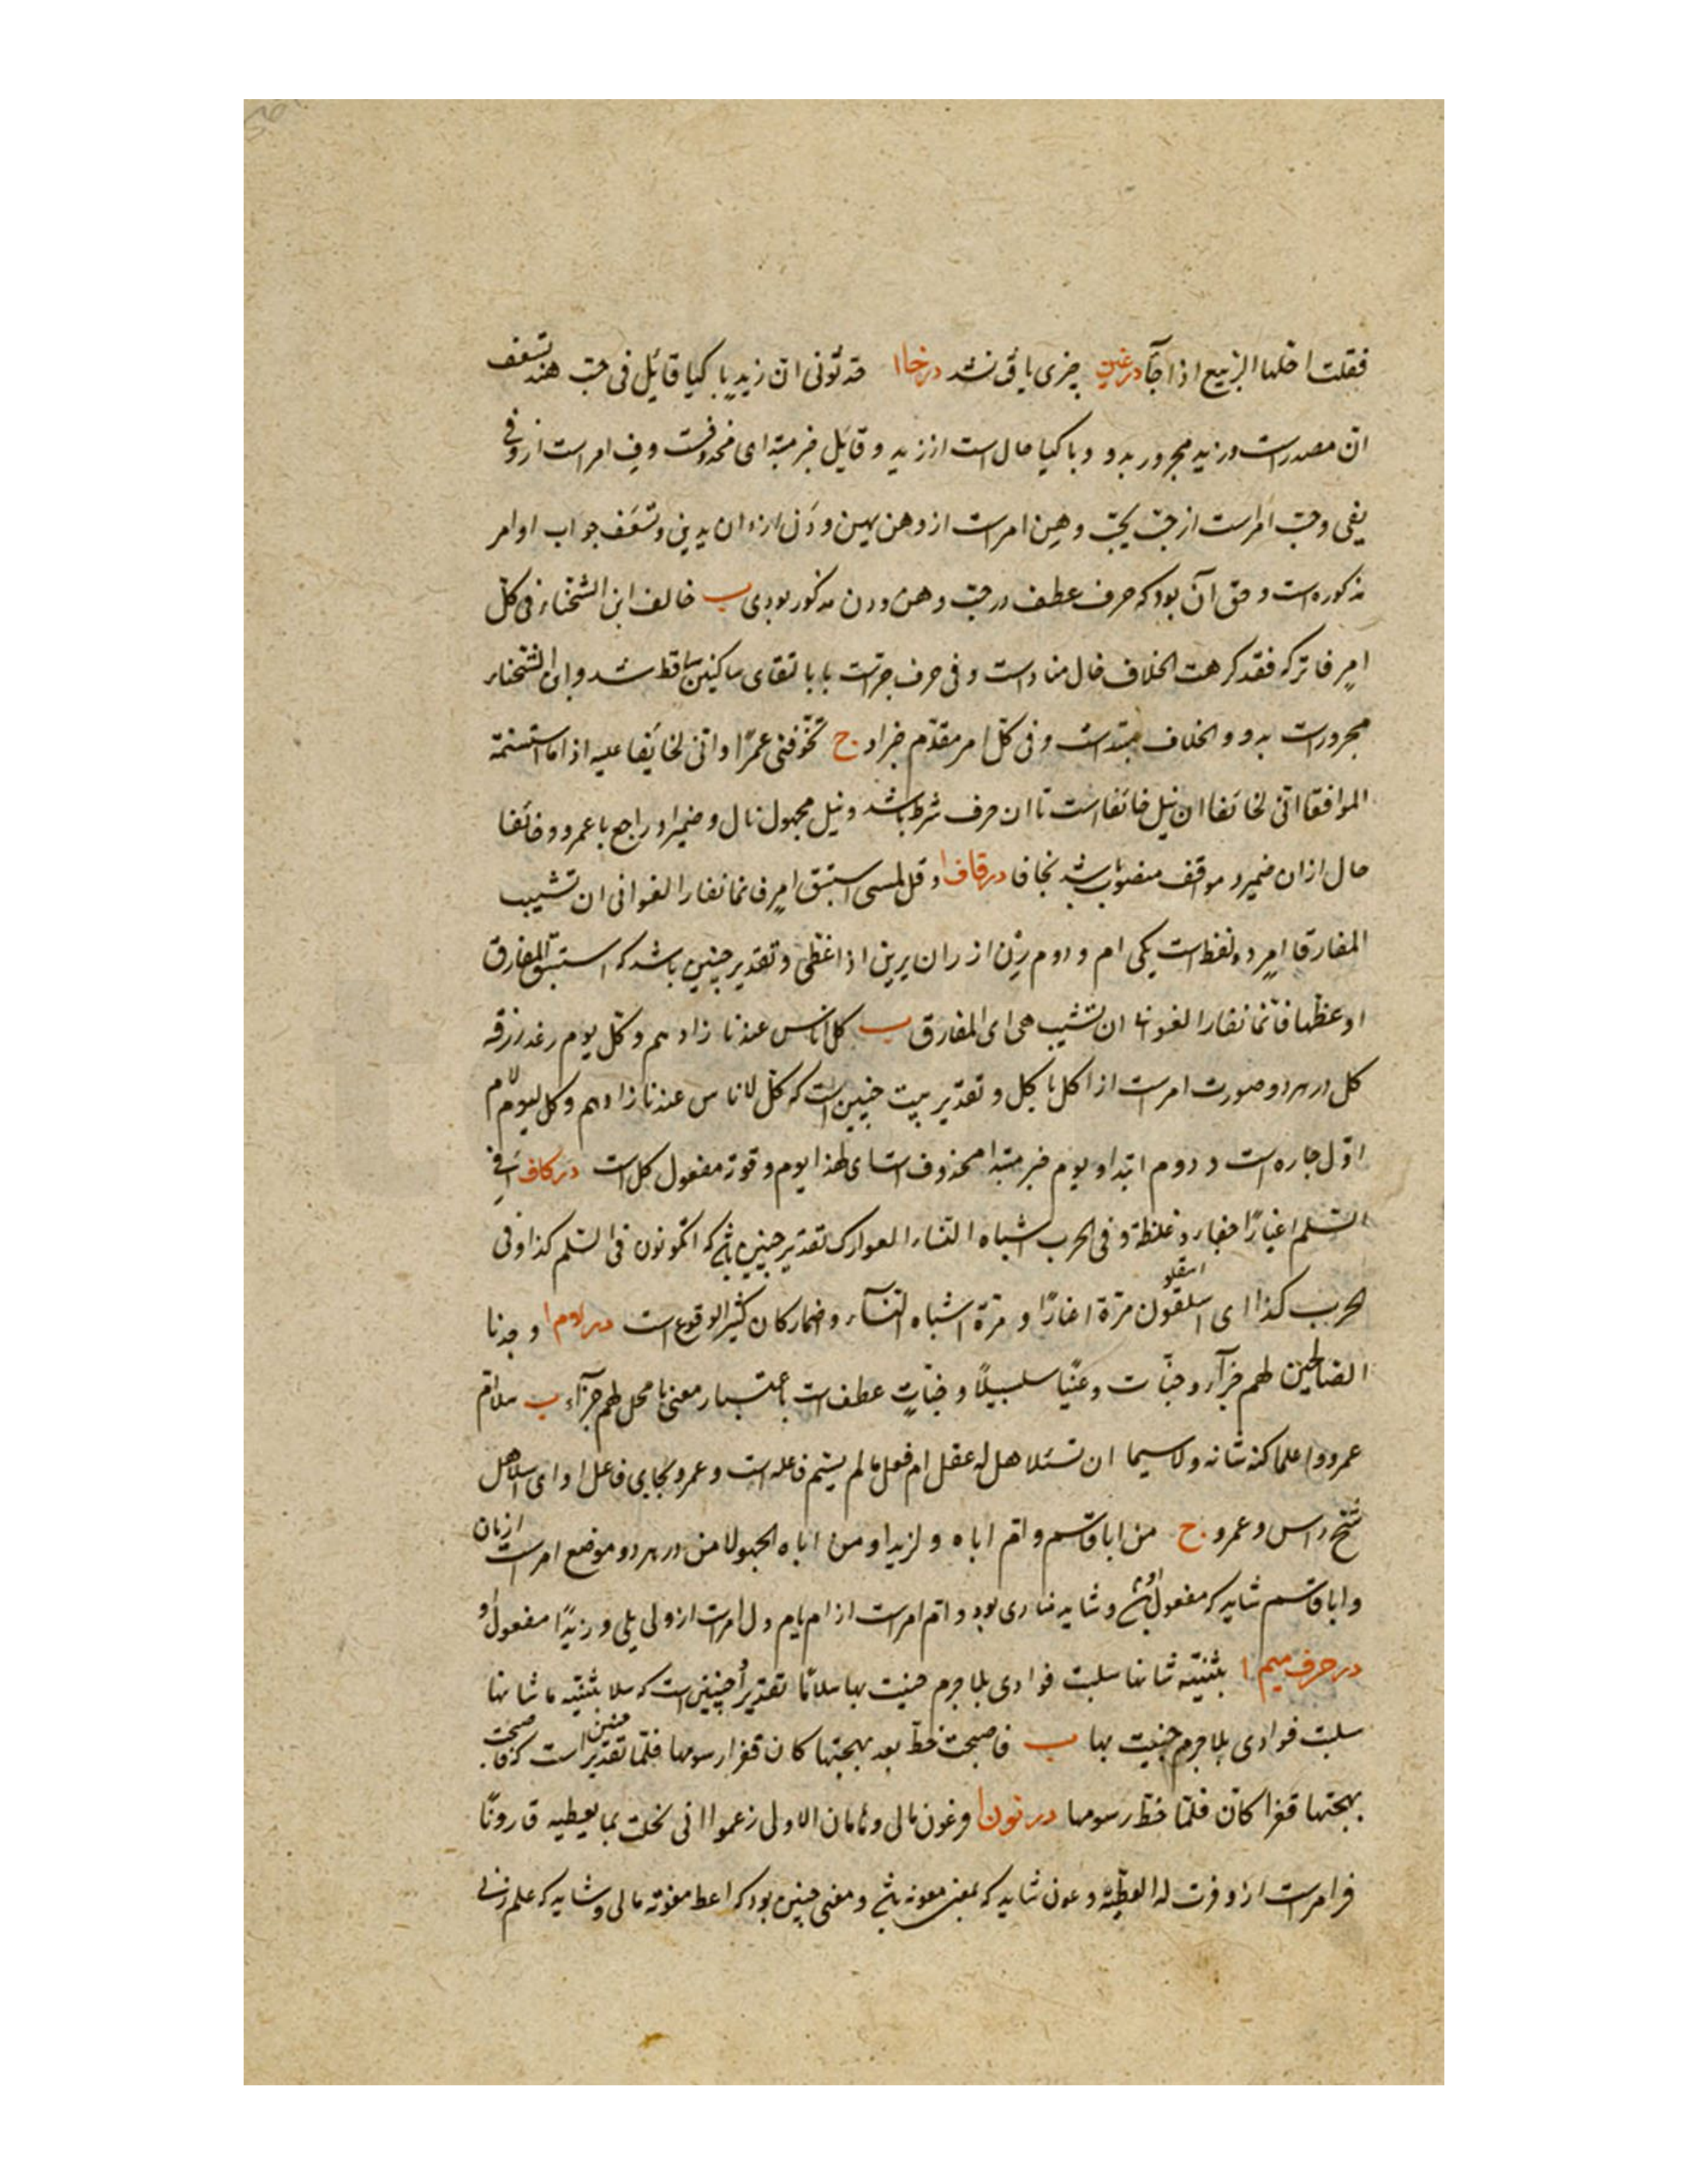 فقلت اخلها الربیع اذا جآ در غین چیزی یافت نشد در خا ا قد تؤنی ان زید باکیا قائل فی حب هند تسعف
ان مصدر است و زید مجرور بدو و باکیا حال است از زید و قایل خبر مبتدای محذوفست و فِ امر است از وفی
یفی و حبّ امر است از حبّ یحبّ و هِن امر است از وهن یهین و دَن از دان یدین و تسعف جواب اوامر
مذکوره است و حق آن بود که حرف عطف در حبّ و هن و دن مذکور بودی ب خالف ابن الشخناء فی کلّ
امرٍ فاترکه فقد کرهت الخلاف خال مناداست و فی حرف جرّست یا بالتقای ساکنین ساقط شد و ابن الشخناء
مجرورست بدو و الخلاف مبتداست و فی کلّ امر مقدّم خبر او ج تخوّفنی عمرًا و انّی لخایفا علیه اذا ما استنمة
الموافقا انّی لخائفا ان نیل خائفا است تا ان حرف شرط باشد و نیل مجهول نال و ضمیر او راجع با عمرو و خائفا
حال ازان ضمیر و موقف منصوب باشد بخافا در قاف ا و قل لمسی استبق امرٍ فانما نفار الغوانی ان تشیب
المفارقا امرٍ دو لفظ است یکی ام و دوم رِن از ران یرین اذا غطّی و تقدیر چنین باشد که استبق المفارق
او غطها فانّما نفار الغوانی ان تشیب هی ای المفارق ب کل اناس عندنا زادهم و کل یوم رغد رزقه
کل در هر دو صورت امر است از اکل یاکل و تقدیر بیت چنین است که کل لاناس عندنا زادهم و کل لیوم لام
اوّل جاره است و دوم ابتدا و یوم خبر مبتدا محذوف است ای لهذا یوم و قوته مفعول کل است در کاف ا فی
السّلم اعیارًا جفاء و غلظة و فی الحرب اشباه النساء العوارک تقدیر چنین باشد که اتکونون فی السّلم کذا و فی
الحرب کذا ای اسلقون مرّة اعیارًا و مرّة اشباه النسآء و اضمار کان کثیر الوقوع است در لام ا وجدنا
الصّالحین لهم جزآء و جنّات و عینًا سلسبیلًا و جنّاتٍ عطف است باعتبار معنی با محل لهم جزآء ب سلا ام
عمرو و اعلما کنه شانه و لا سیما ان تسئلا هل له عقل ام فعل ما لم یسم فاعله است و عمرو بجای فاعل او ای سلا هل
شجّ راس و عمرو ج من ابا قاسم و ام اباه و ل زیدا و من اباه الجهولا من در هر دو موضع امر است از مان
و ابا قاسم شاید که مفعول او باشد و شاید منادی بود و ام امر است از ام یام و ل امر است از ولی یلی و زیدًا مفعول او
در حرف میم ا بثنیّه شانها سلبت فوادی بلا جرم جنیت بها سلاما تقدیر او چنین است که سلا بثنیّه ما شانها
سلبت فوادی بلا جرم جنیت بها ب فاصبحت خطّ بعد بهجتها کان قفرا رسومها قلما تقدیر چنین است که فاصبحت
بهجتها قفرا کان قلما خطّ رسومها در نون ا فرعون مالی و هامان الاولی زعموا انی نخلت بما یعطیه قارونًا
فِر امر است از وفرت له العطیّه و عون شاید که بمعنی معونه باشد و معنی چنین بود که اعط معونة مالی و شاید که علم زنی